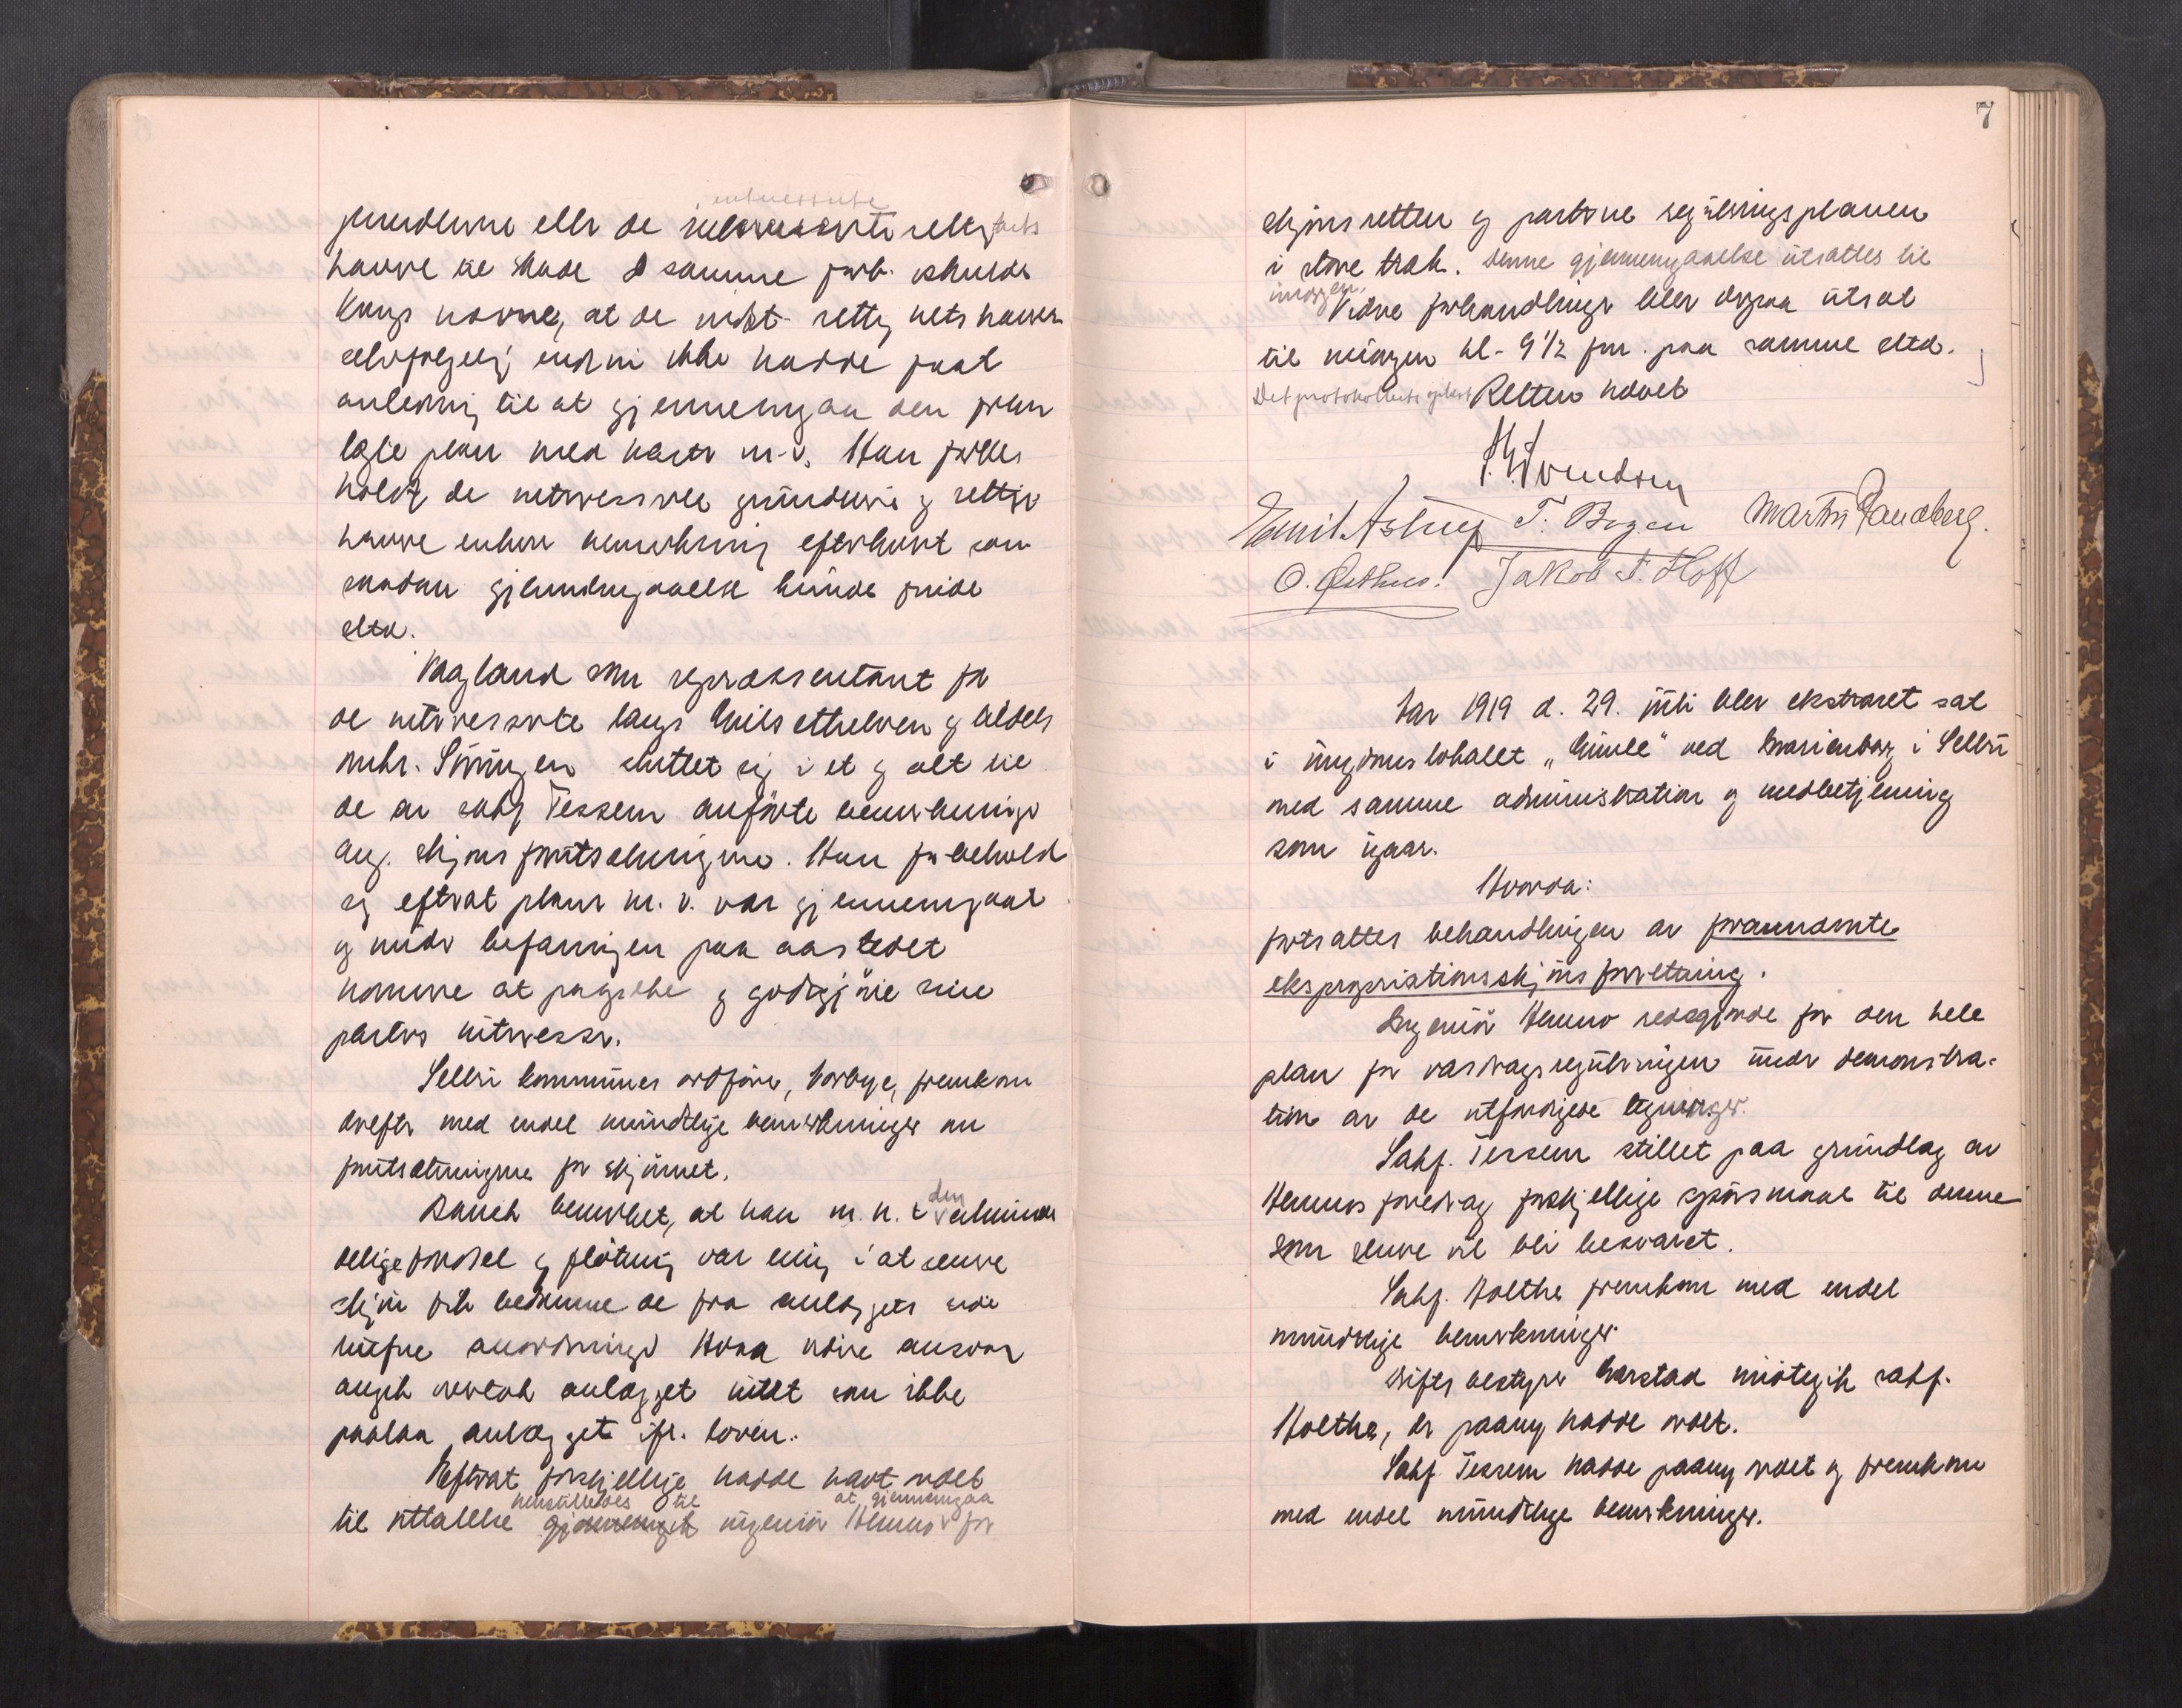 interesserte
grunderne eller de rettighets
havere til skade. I samme forb. skulde
han nævne, at de  rettighetshavere
selvfølgelig endnu ikke hadde faat
anledning til at gjennemgaa den frem
lagte plan med karter m.v. Han forbe
holdt de interesserte grundeiere og rettigh
havere enhver bemerkning efterhvert som
saadan gjennemgaaelse kunde finde
sted.
Vagland som repræsentant for
de interesserte langs Nilsetelven og tildels
ogsaa  sluttet sig i et og alt til
de av sakf. Tessem anførte bemerkninger
ang. skjønsforutsætningene. Han forbeholdt
sig efterat planer m. v. var gjennemgaat
og under befaringen paa aastedet
nærmere at paapeke og godtgjøre sine
parters interesser.
Selbu kommunes ordfører, Norbye, fremkom
derefter med endel mundtlige bemerkninger om
forutsætningene for skjønnet.
Rauch bemerket, at han m. h. t. den almin
delige færdsel og fløtning var enig i at denne
skjøn fik bedømme de fra anlæggets side
trufne anordninger. Hvad videre ansvar
angik overtok anlægget intet som ikke
paalaa anlægget ifl. loven.
Efterat forskjellige hadde havt ordet
henstilledes til at gjennemgaa
til uttalelse gjennemgik ingeniør Henno for
7
skjønsretten og parterne reguleringsplanen
i store træk. Denne gjennemgaaelse utsattes til
imorgen.
Videre forhandlinger blev derpaa utsat
til imorgen kl. 9 1/2 fm. paa samme sted.
Det protokollerte oplæst Retten hævet
Svendsen
Emil Astrup T. Bogen Martin Sandberg.
O. Østhus. Jakob T. Hoff
Aar 1919 d. 29. juli blev ekstraret sat
i ungdomslokalet „Gimle" ved Marienborg i Selbu
med samme administration og medbetjening
som igaar.
Hvorda:
fortsattes behandlingen av forannævnte
ekspropriationsskjønsforretning.
Ingeniør Henno redegjorde for den hele
plan for vasdragsreguleringen under demonstra-
tion av de utfærdigede tegninger.
Sakf. Tessem stillet paa grundlag av
Hennos foredrag forskjellige spørsmaal til denne
som senere vil bli besvaret.
Sakf. Holthe fremkom med endel
mundtlige bemerkninger.
Driftsbestyrer Harstad imøtegik sakf.
Holthe, der paany hadde ordet.
Sakf. Tessem hadde paany ordet og fremkom
med endel mundtlige bemerkninger.